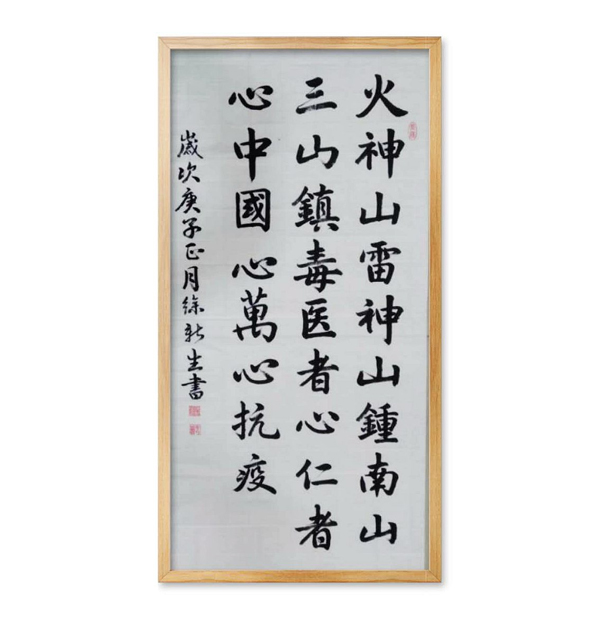 火神山雷神山鍾南山
三山鎮毒医者心仁者
心中國心萬心抗疫
歲次庚子正月徐新生書